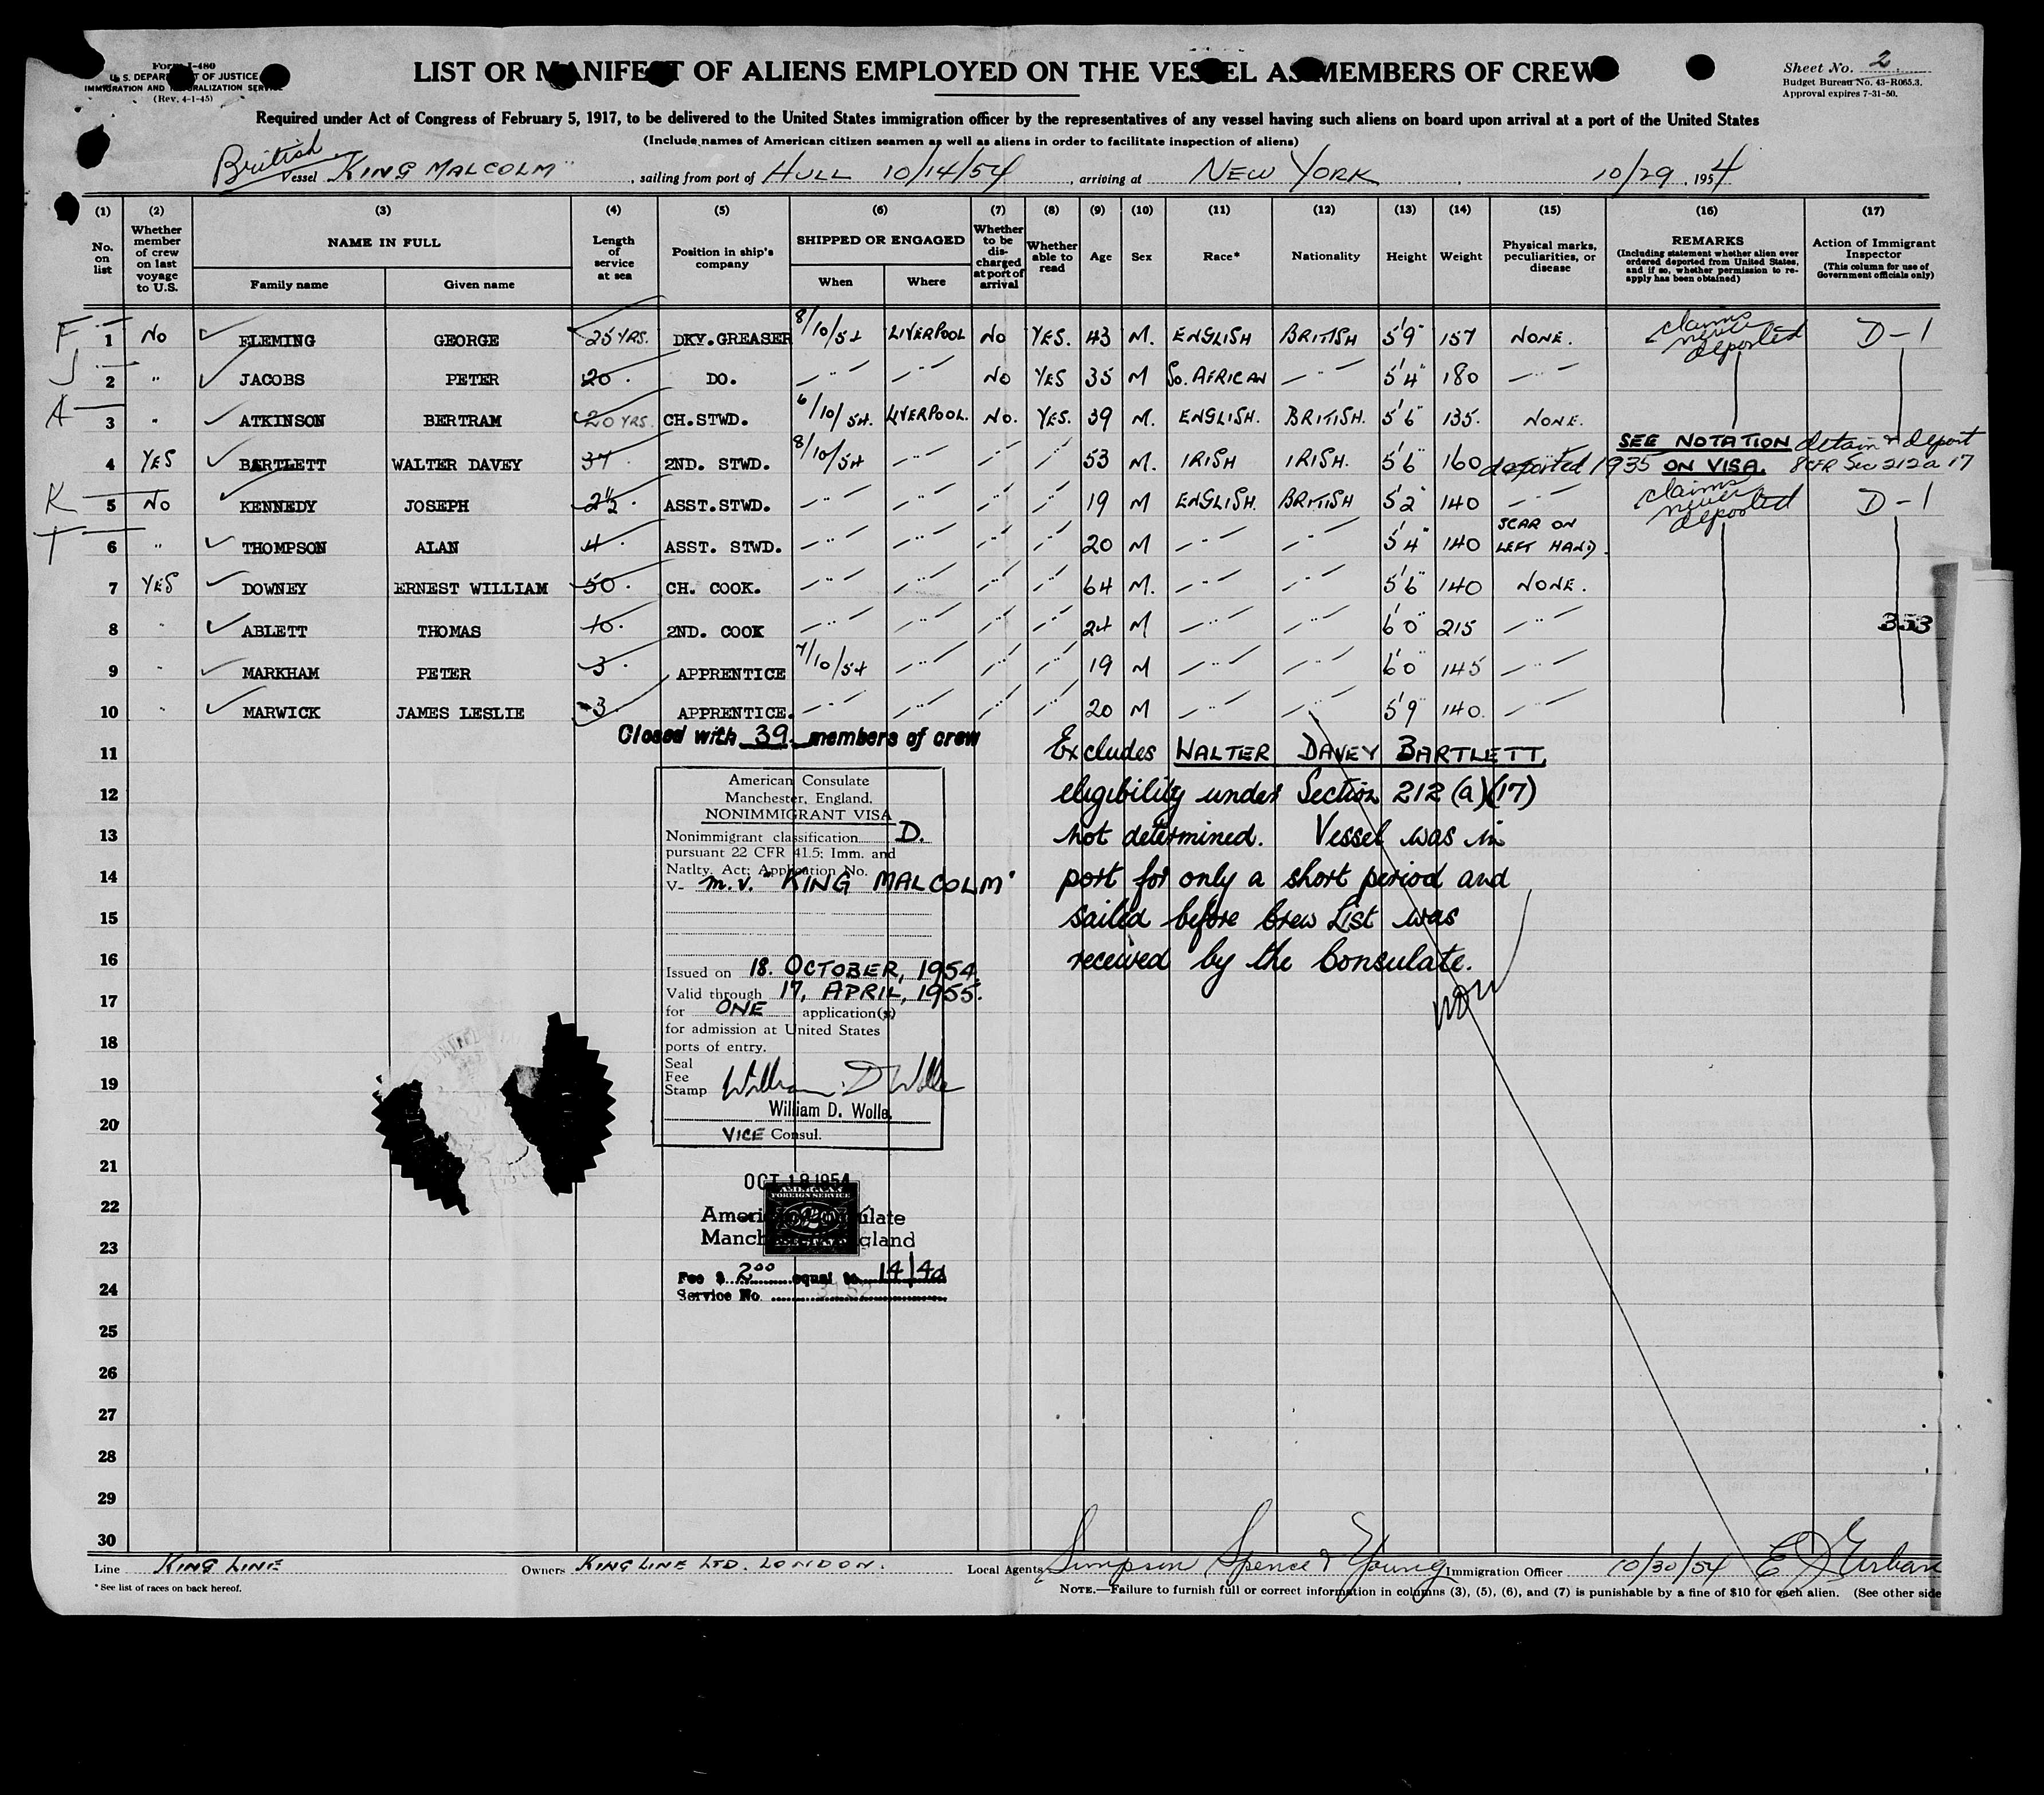 Form I-480
U. S. DEPARTMENT OF JUSTICE
IMMIGRATION AND NATURALIZATION SERVICE
(Rev. 4-1-45)
LIST OR MANIFEST OF ALIENS EMPLOYED ON THE VESSEL AS MEMBERS OF CREW
Sheet No. 2
Budget Bureau No. 43-R065.3.
Approval expires 7-31-50.
Required under Act of Congress of February 5, 1917, to be delivered to the United States immigration officer by the representatives of any vessel having such aliens on board upon arrival at a port of the United States
(Include names of American citizen seamen as well as aliens in order to facilitate inspection of aliens)
British
Vessel KING MALCOLM, sailing from port of HULL 10/14/54, arriving at NEW YORK, 10/29, 1954
(1) (2) (3) (4) (5) (6) (7) (8) (9) (10) (11) (12) (13) (14) (15) (16) (17)
No. on list
Whether member of crew on last voyage to U.S.
NAME IN FULL
Family name
Given name
Length of service at sea
Position in ship's company
SHIPPED OR ENGAGED
When
Where
Whether to be discharged at port of arrival
Whether able to read
Age
Sex
Race*
Nationality
Height
Weight
Physical marks, peculiarities, or disease
REMARKS
(Including statement whether alien ever ordered deported from United States, and if so, whether permission to reapply has been obtained)
Action of Immigrant Inspector
(This column for use of Government officials only)
F 1 NO FLEMING GEORGE 25 YRS. DKY.GREASER 8/10/54 LIVERPOOL NO YES. 43 M. ENGLISH BRITISH 5'9" 157 NONE. claims never deported D-1
J 2 " JACOBS PETER 20. DO. —"— —"— NO YES 35 M So. AFRICAN —"— 5'4" 180 —"—
A 3 " ATKINSON BERTRAM 20 YRS. CH.STWD. 6/10/54. LIVERPOOL. NO. YES. 39 M. ENGLISH. BRITISH. 5'6" 135. NONE.
4 YES BARTLETT WALTER DAVEY 37 2ND. STWD. 8/10/54 —"— —"— —"— 53 M. IRISH IRISH. 5'6" 160 deported 1935 SEE NOTATION ON VISA. detain & deport 8 CFR Sec 212 a 17
K 5 NO KENNEDY JOSEPH 2½. ASST.STWD. —"— —"— —"— —"— 19 M ENGLISH. BRITISH 5'2" 140 —"— claims never deported D-1
T 6 " THOMPSON ALAN 4. ASST. STWD. —"— —"— —"— —"— 20 M —"— —"— 5'4" 140 SCAR ON LEFT HAND.
7 YES DOWNEY ERNEST WILLIAM 50. CH. COOK. —"— —"— —"— —"— 64 M. —"— —"— 5'6" 140 NONE.
8 " ABLETT THOMAS 10. 2ND. COOK —"— —"— —"— —"— 24 M —"— —"— 6'0" 215 —"— 353
9 " MARKHAM PETER 3. APPRENTICE 7/10/54 —"— —"— —"— 19 M —"— —"— 6'0" 145 —"—
10 " MARWICK JAMES LESLIE 3. APPRENTICE. —"— —"— —"— —"— 20 M —"— —"— 5'9" 140. —"—
Closed with 39 members of crew
11
12
13
14
15
16
17
18
19
20
21
22
23
24
25
26
27
28
29
30
American Consulate
Manchester, England.
NONIMMIGRANT VISA
Nonimmigrant classification D.
pursuant 22 CFR 41.5: Imm. and
Natlty. Act; Application No.
V- m.v. "KING MALCOLM"
Issued on 18. OCTOBER, 1954.
Valid through 17, APRIL, 1955.
for ONE application(s)
for admission at United States
ports of entry.
Seal
Fee
Stamp William D Wolle
William D. Wolle.
VICE Consul.
Excludes WALTER DAVEY BARTLETT,
eligibility under Section 212 (a)(17)
not determined. Vessel was in
port for only a short period and
sailed before Crew List was
received by the Consulate.
OCT 18 1954
AMERICAN
FOREIGN SERVICE
American Consulate
Manchester, England
Fee $ 2.00 equal to 14/4d
Service No.
Line KING LINE
Owners KING LINE LTD. LONDON.
Local Agents Simpson Spence & Young
Immigration Officer 10/30/54 E J Urban
* See list of races on back hereof.
NOTE.—Failure to furnish full or correct information in columns (3), (5), (6), and (7) is punishable by a fine of $10 for each alien. (See other side